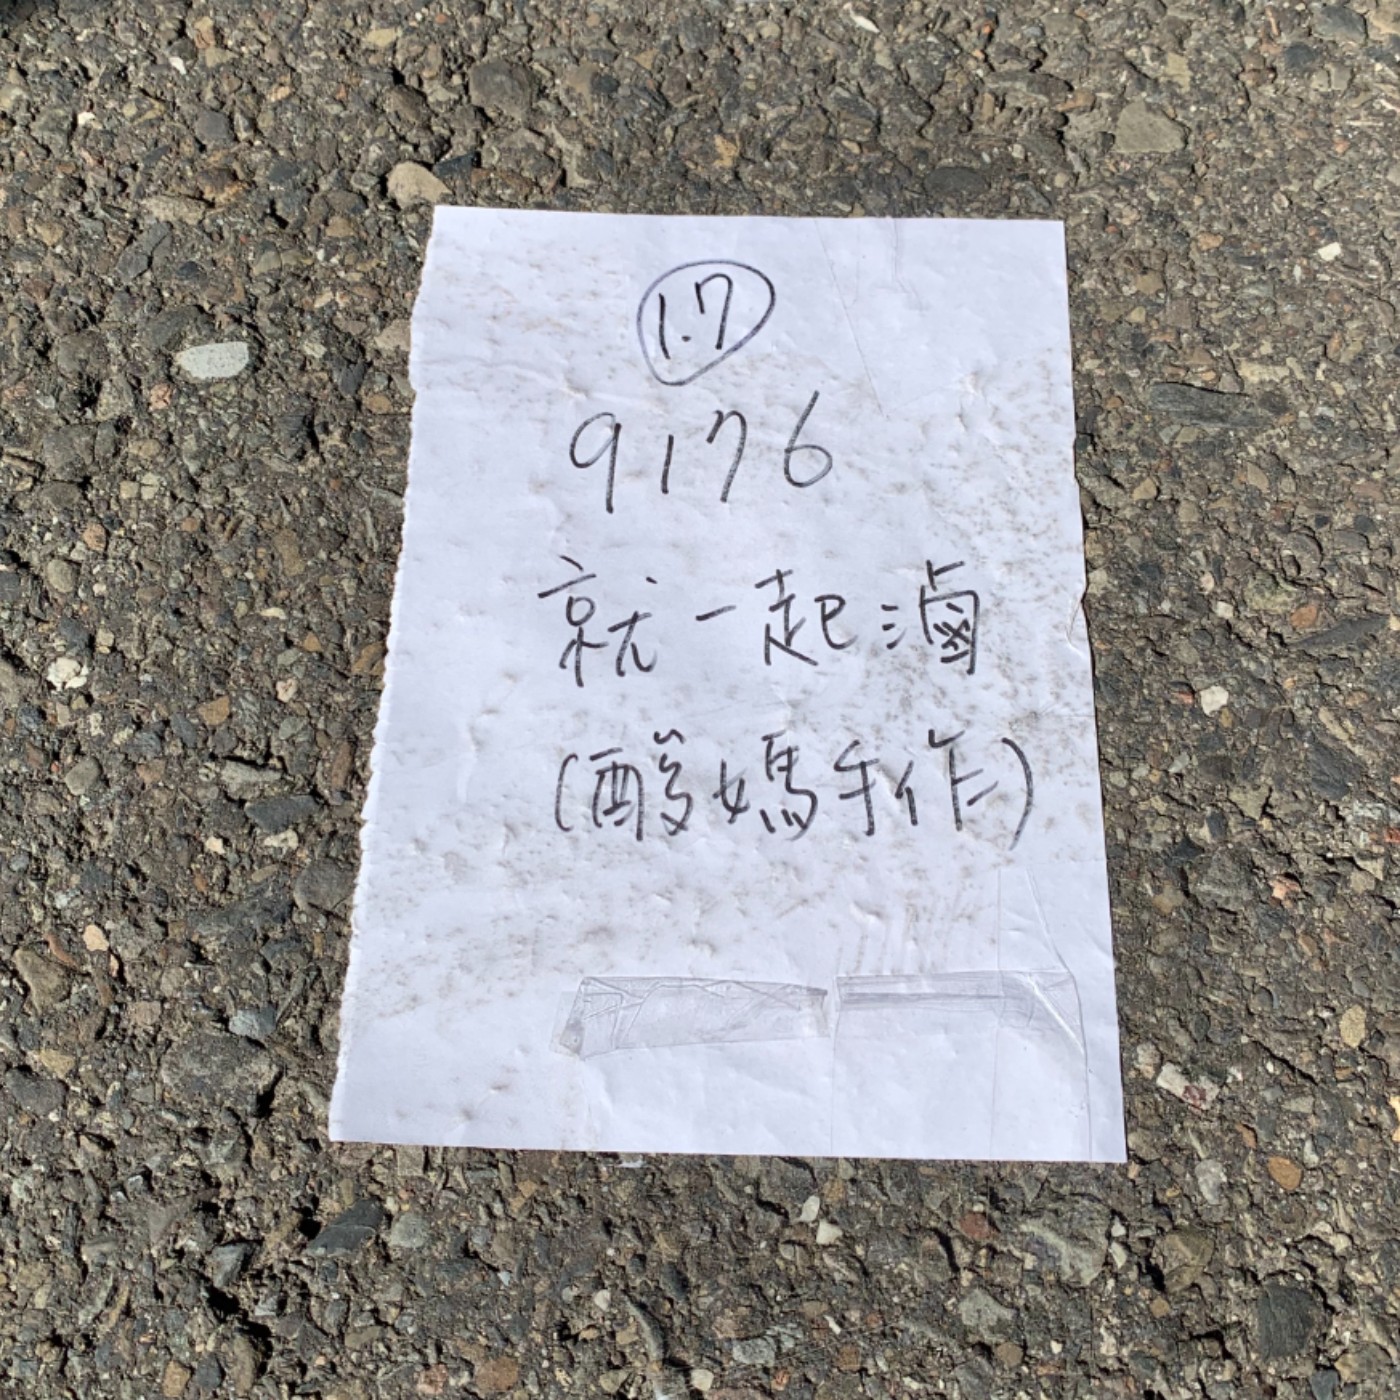 1.7
9176
就一起滷
(酸媽手作)